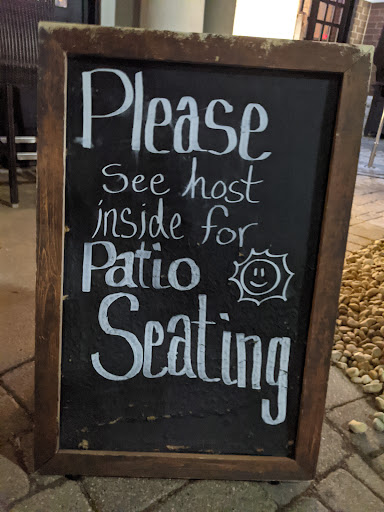 Please
see host
inside for
Patio
Seating